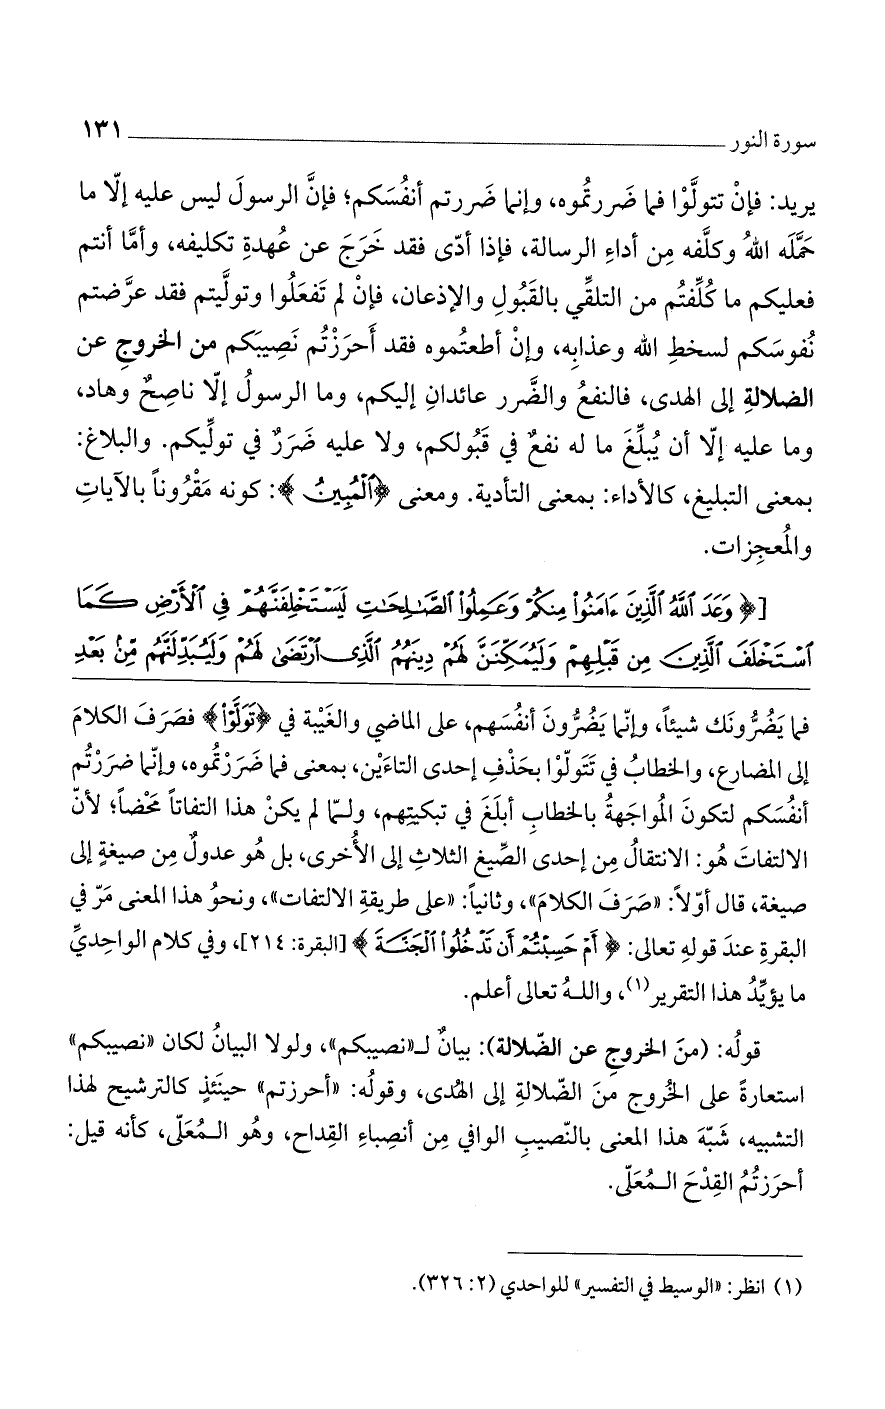 سورة النور ١٣١
يريد: فإنْ تتولَّوْا فما ضَررتمُوه، وإنما ضَررتم أنفُسَكم؛ فإنَّ الرسولَ ليس عليه إلّا ما
حَمَّلَه اللهُ وكلَّفه مِن أداءِ الرسالة، فإذا أدّى فقد خَرَجَ عن عُهدةِ تكليفه، وأمَّا أنتم
فعليكم ما كُلِّفتُم من التلقِّي بالقَبُولِ والإذعان، فإنْ لم تَفعَلُوا وتولَّيتم فقد عرَّضتم
نُفوسَكم لسخطِ الله وعذابِه، وإنْ أطعتُموه فقد أَحرَزْتُم نَصِيبَكم من الخروجِ عن
الضلالةِ إلى الهدى، فالنفعُ والضَّرر عائدانِ إليكم، وما الرسولُ إلّا ناصِحٌ وهاد،
وما عليه إلّا أن يُبلِّغَ ما له نفعٌ في قَبُولكم، ولا عليه ضَرَرٌ في تولِّيكم. والبلاغ:
بمعنى التبليغ، كالأداء: بمعنى التأدية. ومعنى ﴿ٱلْمُبِينُ﴾: كونه مَقْرُوناً بالآياتِ
والمُعجِزات.
[﴿وَعَدَ ٱللَّهُ ٱلَّذِينَ ءَامَنُوا۟ مِنكُمْ وَعَمِلُوا۟ ٱلصَّـٰلِحَـٰتِ لَيَسْتَخْلِفَنَّهُمْ فِى ٱلْأَرْضِ كَمَا
ٱسْتَخْلَفَ ٱلَّذِينَ مِن قَبْلِهِمْ وَلَيُمَكِّنَنَّ لَهُمْ دِينَهُمُ ٱلَّذِى ٱرْتَضَىٰ لَهُمْ وَلَيُبَدِّلَنَّهُم مِّنۢ بَعْدِ
فما يَضُرُّونَك شيئاً، وإنّما يَضُرُّونَ أنفُسَهم، على الماضي والغَيْبة في ﴿تَوَلَّوْا۟﴾ فصَرَفَ الكلامَ
إلى المضارع، والخطابُ في تَتَولّوْا بحَذْفِ إحدى التاءَيْن، بمعنى فما ضَرَرْتمُوه، وإنّما ضرَرْتُم
أنفُسَكم لتكونَ المُواجَهةُ بالخطابِ أبلَغَ في تبكيتِهم، ولـمّا لم يكنْ هذا التفاتاً مَحْضاً؛ لأنّ
الالتفاتَ هُو: الانتقالُ مِن إحدى الصِّيغ الثلاثِ إلى الأُخرى، بل هُو عدولٌ مِن صيغةٍ إلى
صيغة، قال أوّلاً: «صَرَفَ الكلامَ»، وثانياً: «على طريقةِ الالتفات»، ونحوُ هذا المعنى مَرّ في
البقرةِ عندَ قولِه تعالى: ﴿أَمْ حَسِبْتُمْ أَن تَدْخُلُوا۟ ٱلْجَنَّةَ﴾ [البقرة: ٢١٤]، وفي كلام الواحِديِّ
ما يؤيِّدُ هذا التقرير(١)، واللـهُ تعالى أعلم.
قولُه: (منَ الخروجِ عن الضّلالة): بيانٌ لـ«نصيبكم»، ولولا البيانُ لكان «نصيبكم»
استعارةً على الخُروج منَ الضّلالةِ إلى الهُدى، وقولُه: «أحرزتم» حينَئذٍ كالترشيح لهذا
التشبيه، شَبّهَ هذا المعنى بالنّصيبِ الوافي مِن أنصِباءِ القِداح، وهُو الـمُعَلّى، كأنه قيل:
أحرَزتُمُ القِدْحَ الـمُعَلّى.
(١) انظر: «الوسيط في التفسير» للواحدي (٢: ٣٢٦).